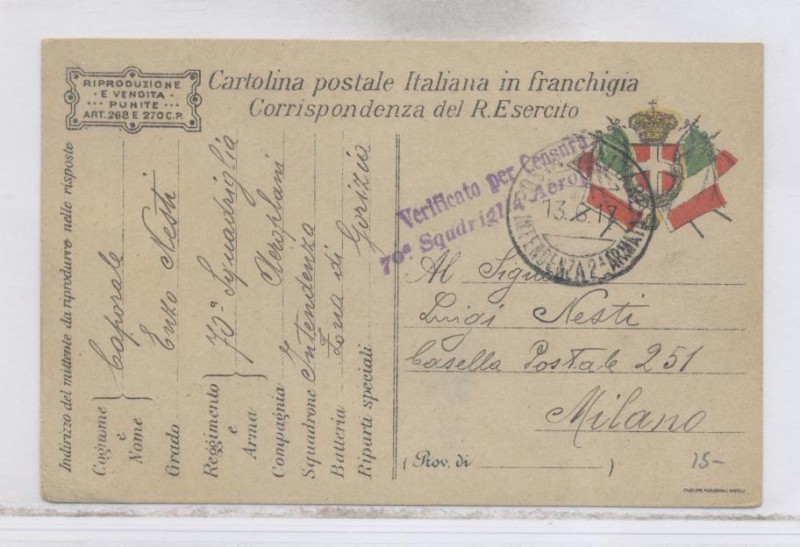 RIPRODUZIONE
E VENDITA
PUNITE
ART. 268 E 270 C.P.
Cartolina postale Italiana in franchigia
Corrispondenza del R. Esercito
Verificato per Censura
70ª Squadriglia Aerop
POSTA
13. 17
INTENDENZA 2ª ARMATA
Al Signor
Luigi Nesti
Casella Postale 251
Milano
(Prov. di )
15-
Indirizzo del mittente da riprodurre nelle risposte
Cognome e Nome
Caporale
Grado
Enzo Nesti
Reggimento e Arma
70ª Squadriglia
Compagnia
Aeroplani
Squadrone
Intendenza
Batteria
Zona di Gorizia
Riparti speciali